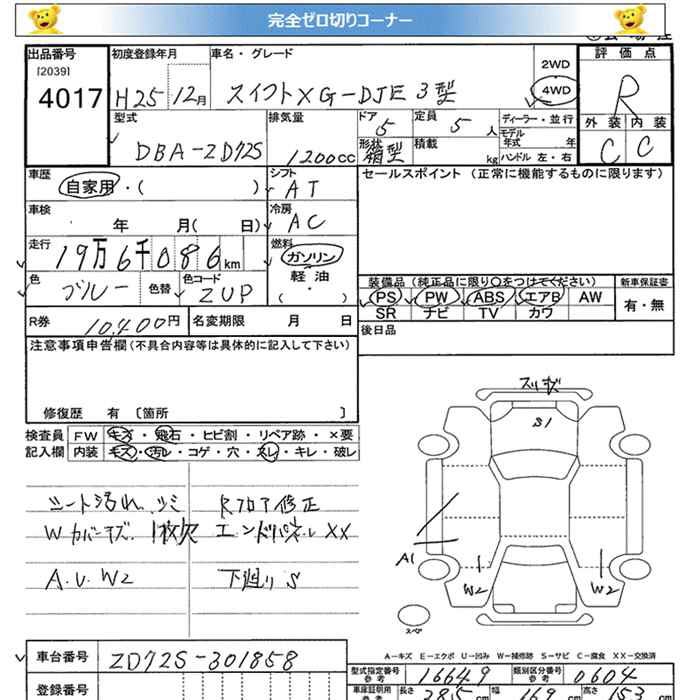 完全ゼロ切りコーナー
出品番号
[2039]
4017
初度登録年月
H25 12月
車名・グレード
スイフト XG-DJE 3型
2WD
4WD
評価点
R
外装 内装
C C
型式
DBA-ZD72S
排気量
1200cc
ドア
5
定員
5 人
ディーラー・並行
形状
箱型
積載
kg
モデル年式 年
ハンドル 左・右
車歴
自家用・( )
シフト
AT
セールスポイント (正常に機能するものに限ります)
車検
年 月( 日)
冷房
AC
走行
19万6千086km
燃料
ガソリン
軽油
( ・ )
色
ブルー
色替
色コード
ZUP
装備品 (純正品に限り〇をつけてください)
PS PW ABS エアB AW
SR ナビ TV カワ
新車保証書
有・無
R券
10,400円
名変期限 月 日
後日品
注意事項申告欄(不具合内容等は具体的に記入して下さい)
修復歴 有 [箇所 ]
検査員
記入欄
FW キズ・飛石・ヒビ割・リペア跡・×要
内装 キズ・汚れ・コゲ・穴・スレ・キレ・破レ
シート汚れ、シミ
Wカバーキズ、1枚欠
A.U.W2
Rフロア修正
エンドパネルXX
下廻りS
スリキズ
S1
A1
W2
W2
スペア
A-キズ E-エクボ U-凹み W-補修跡 S-サビ C-腐食 XX-交換済
車台番号
ZD72S-301858
登録番号
型式指定番号
参考
16649
類別区分番号
参考
0604
車庫証明用
参考
長さ 385cm
幅 169cm
高さ 153cm